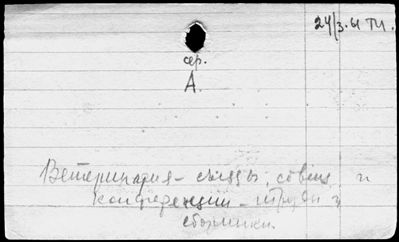 24/3.61 ТМ.
сер.
А.
Ветеринария - съезды, совещ. и
конференции - труды и
сборники.